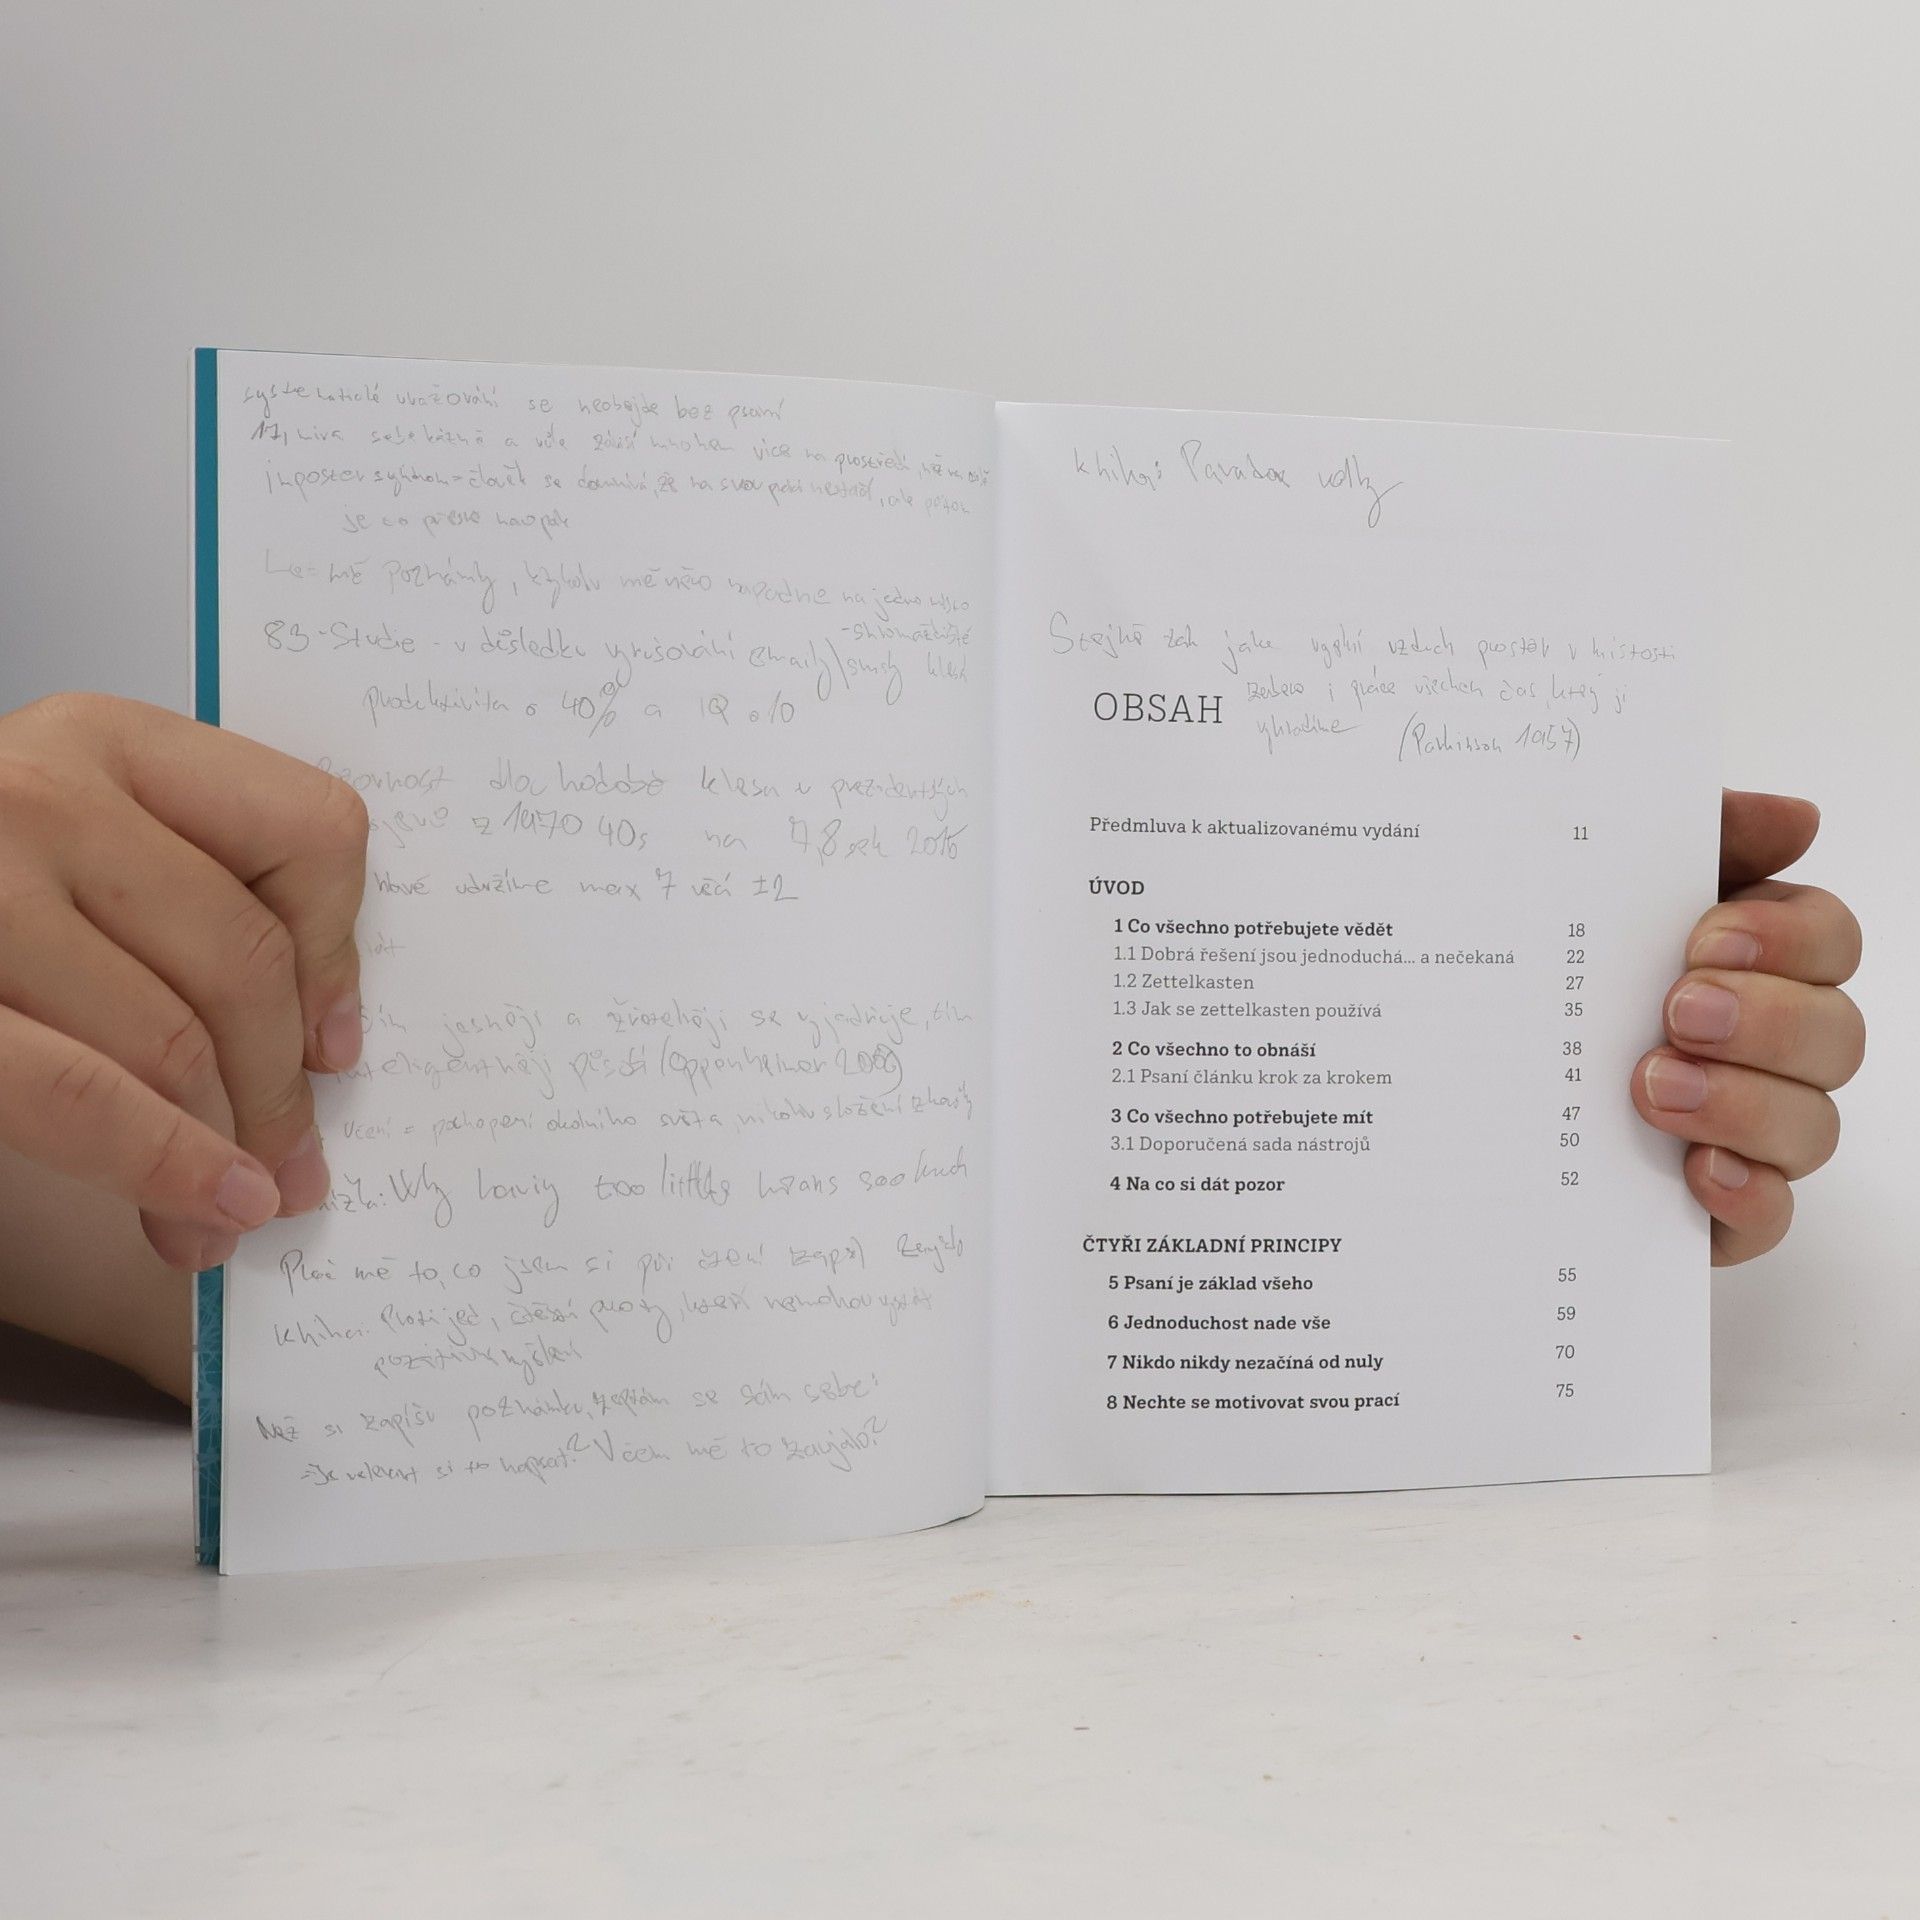 se neobejde bez psaní
a vůle závisí mnohem více na prostředí
imposter syndrom = člověk se domnívá, že na svou práci nestačí, ale
je to přesně naopak
mé poznámky, kdykoliv mě něco napadne na jedno místo
- shromaždiště
83 - Studie - v důsledku vyrušování emaily\smsky klesá
produktivita o 40% a IQ o 10
dlouhodobě klesá u prezidentských
z 1970 40s na 7,8 sek
udržíme max 7 věcí ±2
jasněji a se vyjadřuje, tím
inteligentněji působí (Oppenheimer
Učení = pochopení okolního světa, nikoliv
Why having too little means soo much
Proč mě to, co jsem si při čtení zapsal zaujalo
Kniha: Protijed, štěstí pro ty, kteří nemohou vystát
pozitivní myšlení
Než si zapíšu poznámku, zeptám se sám sebe:
=Je relevant si to napsat? V čem mě to zaujalo?
kniha: Paradox volby
Stejně tak jako vyplní vzduch prostor v místnosti
zabere i práce všechen čas, který ji
vyhradíme (Parkinson 1957)
OBSAH
Předmluva k aktualizovanému vydání 11
ÚVOD
1 Co všechno potřebujete vědět 18
1.1 Dobrá řešení jsou jednoduchá... a nečekaná 22
1.2 Zettelkasten 27
1.3 Jak se zettelkasten používá 35
2 Co všechno to obnáší 38
2.1 Psaní článku krok za krokem 41
3 Co všechno potřebujete mít 47
3.1 Doporučená sada nástrojů 50
4 Na co si dát pozor 52
ČTYŘI ZÁKLADNÍ PRINCIPY
5 Psaní je základ všeho 55
6 Jednoduchost nade vše 59
7 Nikdo nikdy nezačíná od nuly 70
8 Nechte se motivovat svou prací 75